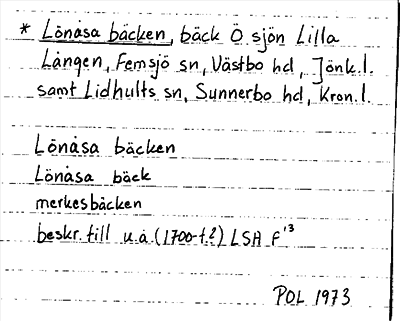 * Lönåsa bäcken, bäck Ö sjön Lilla
Lången, Femsjö sn, Västbo hd, Jönk.l.
samt Lidhults sn, Sunnerbo hd, Kron.l.
Lönåsa bäcken
Lönåsa bäck
merkesbäcken
beskr. till u.å. (1700-t.?) LSA F'³
POL 1973